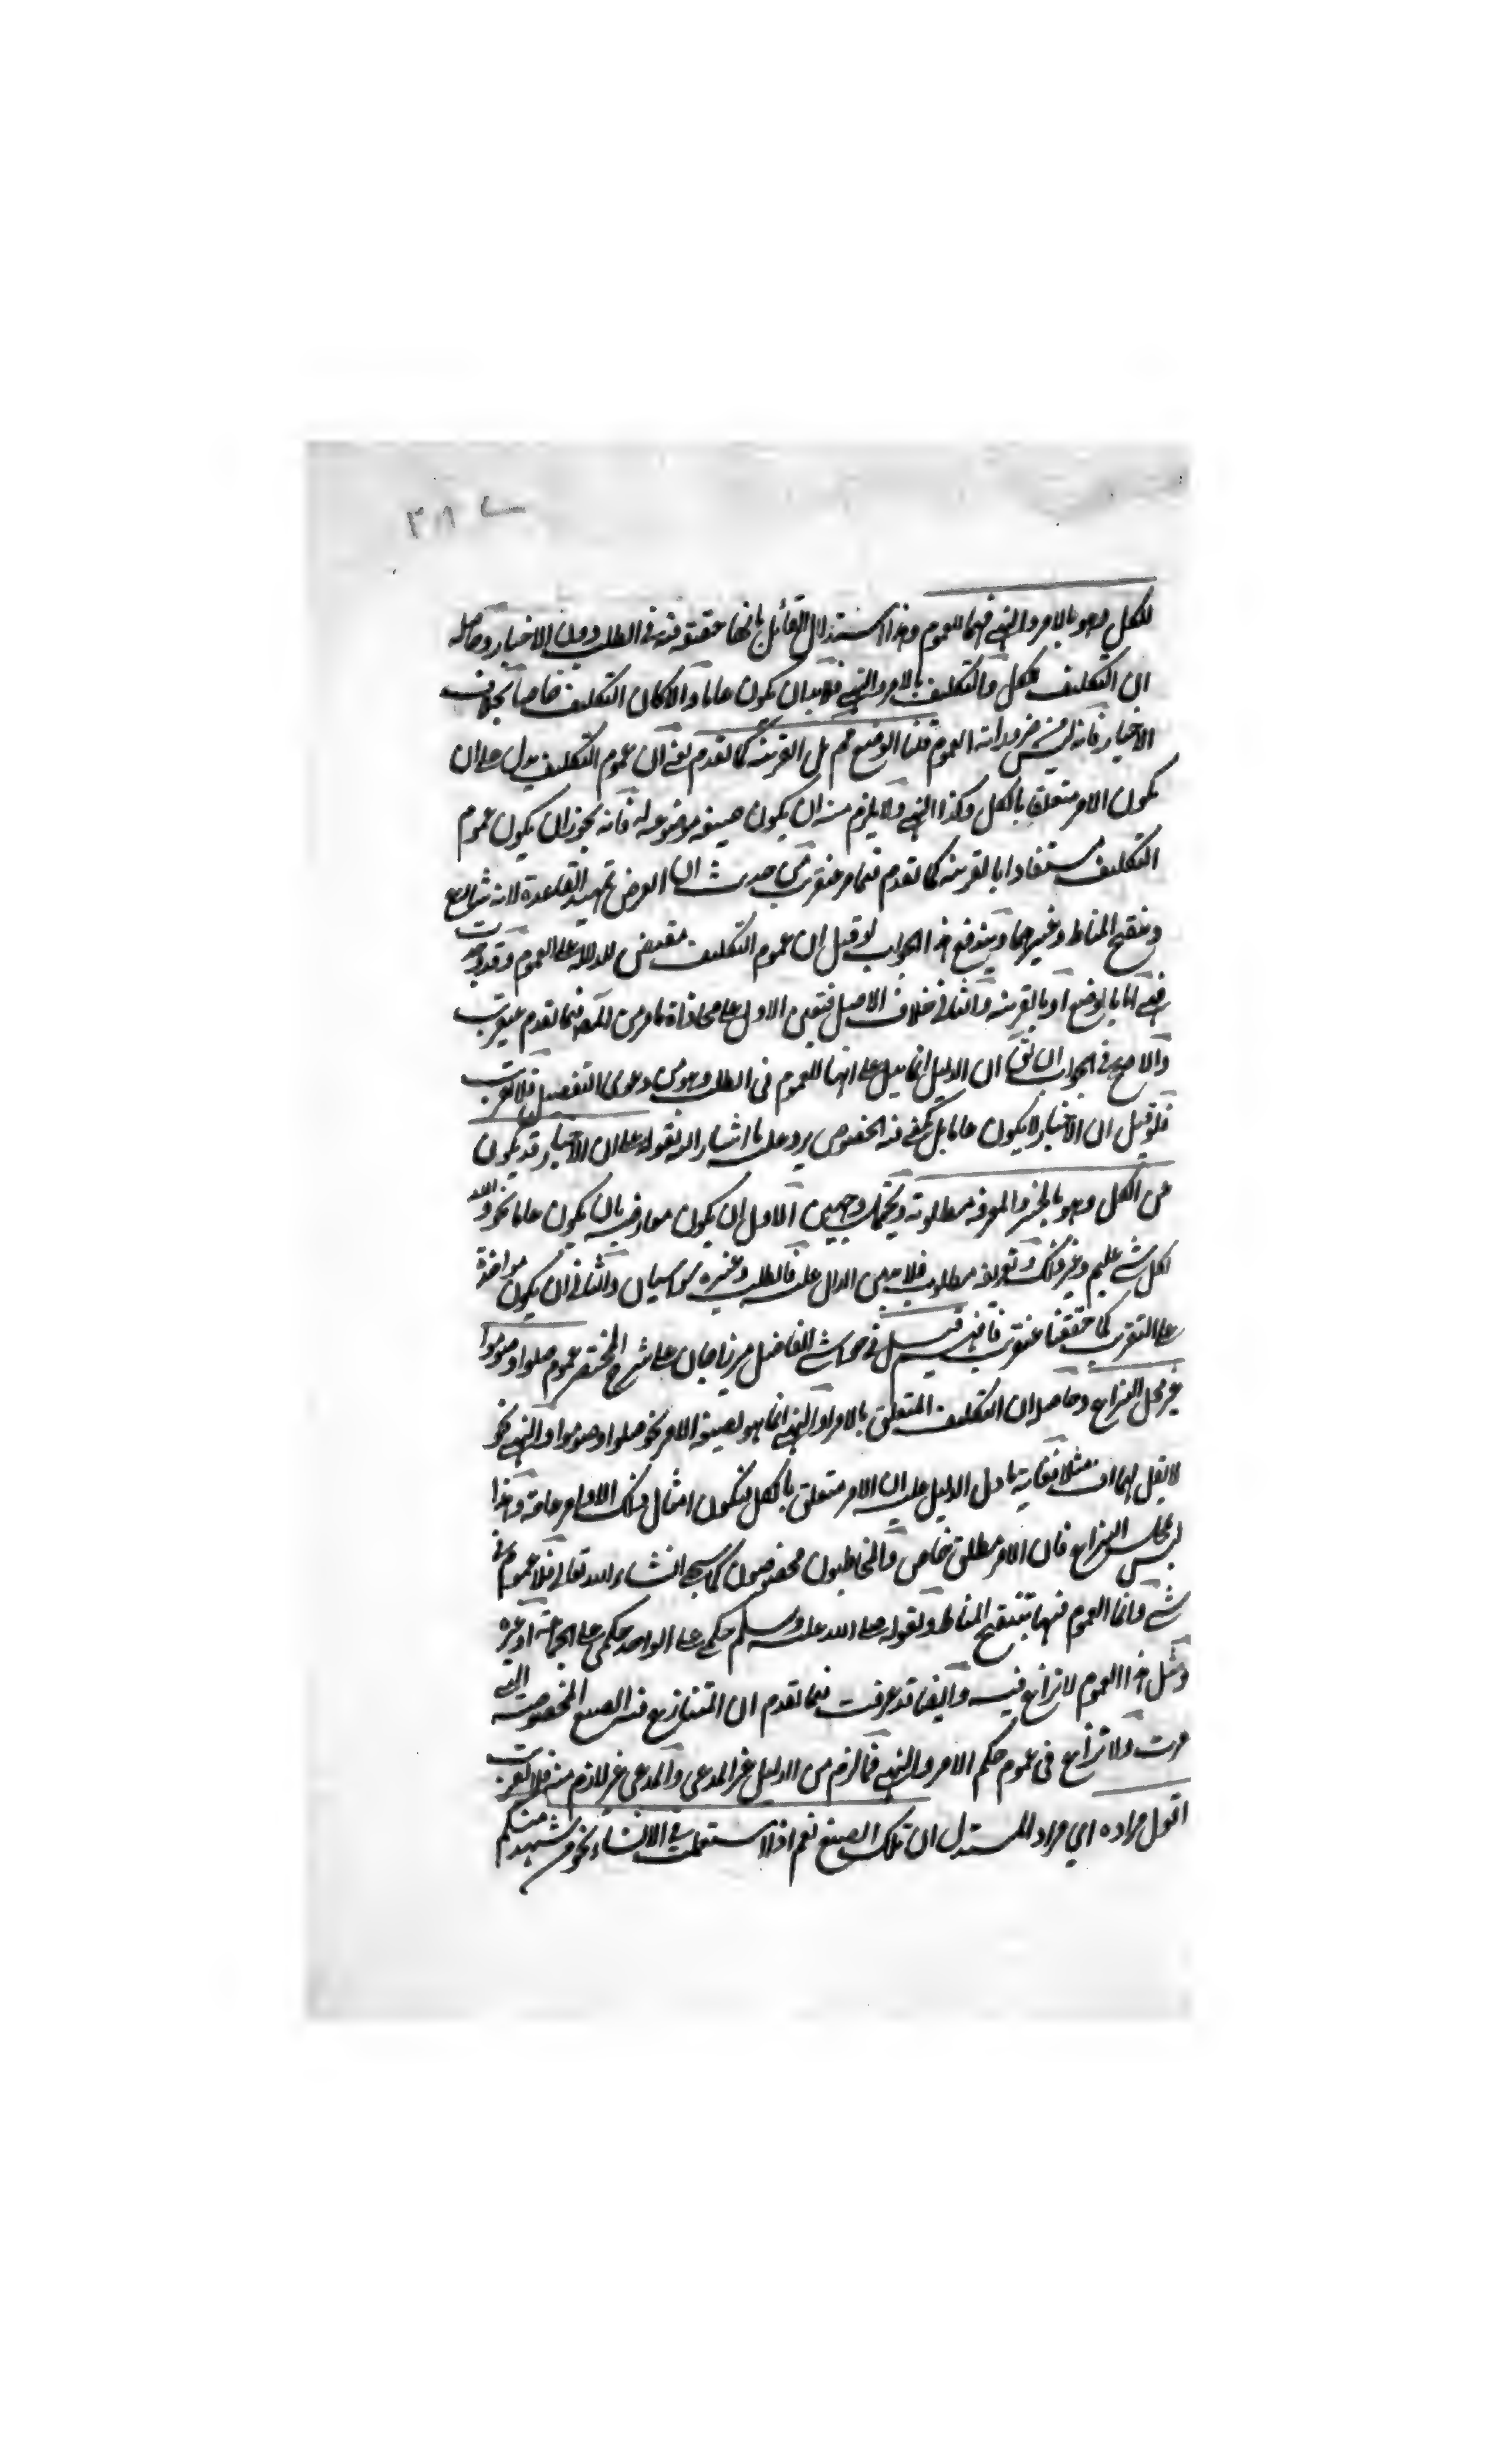 ٣١٨
للكل وهو بالامر والنهي فهما للعموم وهذا استدلال القائل بانها حقيقة فيه في الطلب دون الاخبار وحاصله
ان التكليف للكل والتكليف بالامر والنهي فلابد ان يكون عاما والا كان التكليف خاصا بخلاف
الاخبار فانه ليس من ضروراته العموم قلنا الوضع مم بل القرينة كما تقدم يعني ان عموم التكليف يدل على ان
يكون الامر متعلقا بالكل وكذا النهي ولا يلزم منه ان يكون صيغة موضوعة له فانه يجوز ان يكون عموم
التكليف مستفادا بالقرينة كما تقدم فيما مر عنقريب من حديث ان الغرض تمهيد القاعدة لانه شارع
وتنقيح المناط وغيرهما ويندفع هذا الجواب لو قيل ان عموم التكليف مقتض للدلالة على العموم وقد
فهي اما بالوضع او بالقرينة والثاني خلاف الاصل فتعين الاول على محاذاة ما مر من المص فيما تقدم عنقريب
والاصح في الجواب ان يق ان الدليل انما يدل على انها للعموم في الطلب وهو من دعوى التفصيل فلا تقريب
فلو قيل ان الاخبار لا يكون عاما بل يكفي فيه الخصوص يرد عليه ما اشار اليه بقوله على ان الاخبار قد يكون
عن الكل وهو بالخبر والمعرفة مطلوبة ويحتمل وجهين الاول ان يكون معارضة بان يكون عاما نحو والله
بكل شيء عليم وغير ذلك وتعريفه مطلوب فلابد من الدال عليه فالطلب وغيره سواسيان والثاني ان يكون مواخذة
على التقريب كما حققنا عنقريب فافهم قيل في حواشي الفاضل ميرزاجان على شرح المختصر عموم صلوا وصوموا
غير محل النزاع وحاصله ان التكليف المتعلق بالامر والنهي انما هو بصيغة الامر نحو صلوا وصوموا والنهي نحو
لا تقل لهما اف مثلا فغاية ما دل الدليل عليه ان الامر متعلق بالكل فيكون امثال تلك الاوامر عامة وهذا
ليس محل النزاع فان الامر مطلق خاص والمخاطبون مخصوصون كما سيجيء انشاء الله تعالى فلا عموم في
شيء وانما العموم فيها بتنقيح المناط وبقوله صلى الله عليه وسلم حكمي على الواحد حكمي على الجماعة او غيره
ومثل هذا العموم لا نزاع فيه وايضا قد عرفت فيما تقدم ان المتنازع فيه الصيغ المخصوصة التي
مرت ولا نزاع في عموم حكم الامر والنهي فما لزم من الدليل غير المدعى والمدعى غير لازم منه فلا تقريب
اقول مراده اي مراد المستدل ان تلك الصيغ نعم اذا استعملت في الانشاء نحو فمن شهد منكم